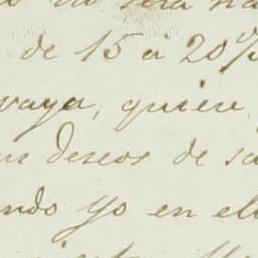 no será
de 15 a 20%
vaya, quiere
deseos de sa
ndo yo en el